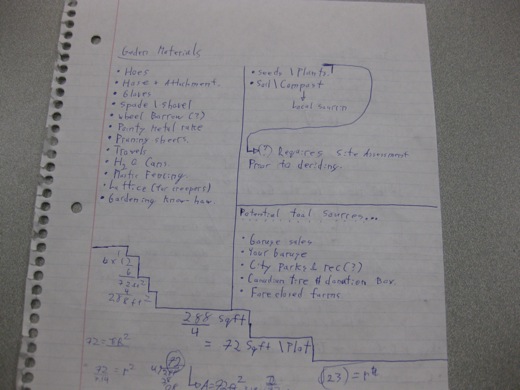 Garden Materials
• Hoes
• Hose + Attachment.
• Gloves
• Spade \ shovel
• wheel Barrow (?)
• Pointy Metal rake
• Pruning sheers.
• Travels
• H2O Cans.
• Plastic Fencing
• Lattice (for creepers)
• Gardening Know-how
• seeds \ Plants.
• Soil \ Compost
Local sourcin
(?) Requires Site assessment
Prior to deciding.
Potential tool sources...
• Garage sales
• Your Garage
• City Parks & rec (?)
• Canadian tire # donation Box.
• Foreclosed farms
288 Sqft
4
= 72 Sqft \ Plot
288 ft²
72 = πR²
72
= r²
(72)
(23) = r